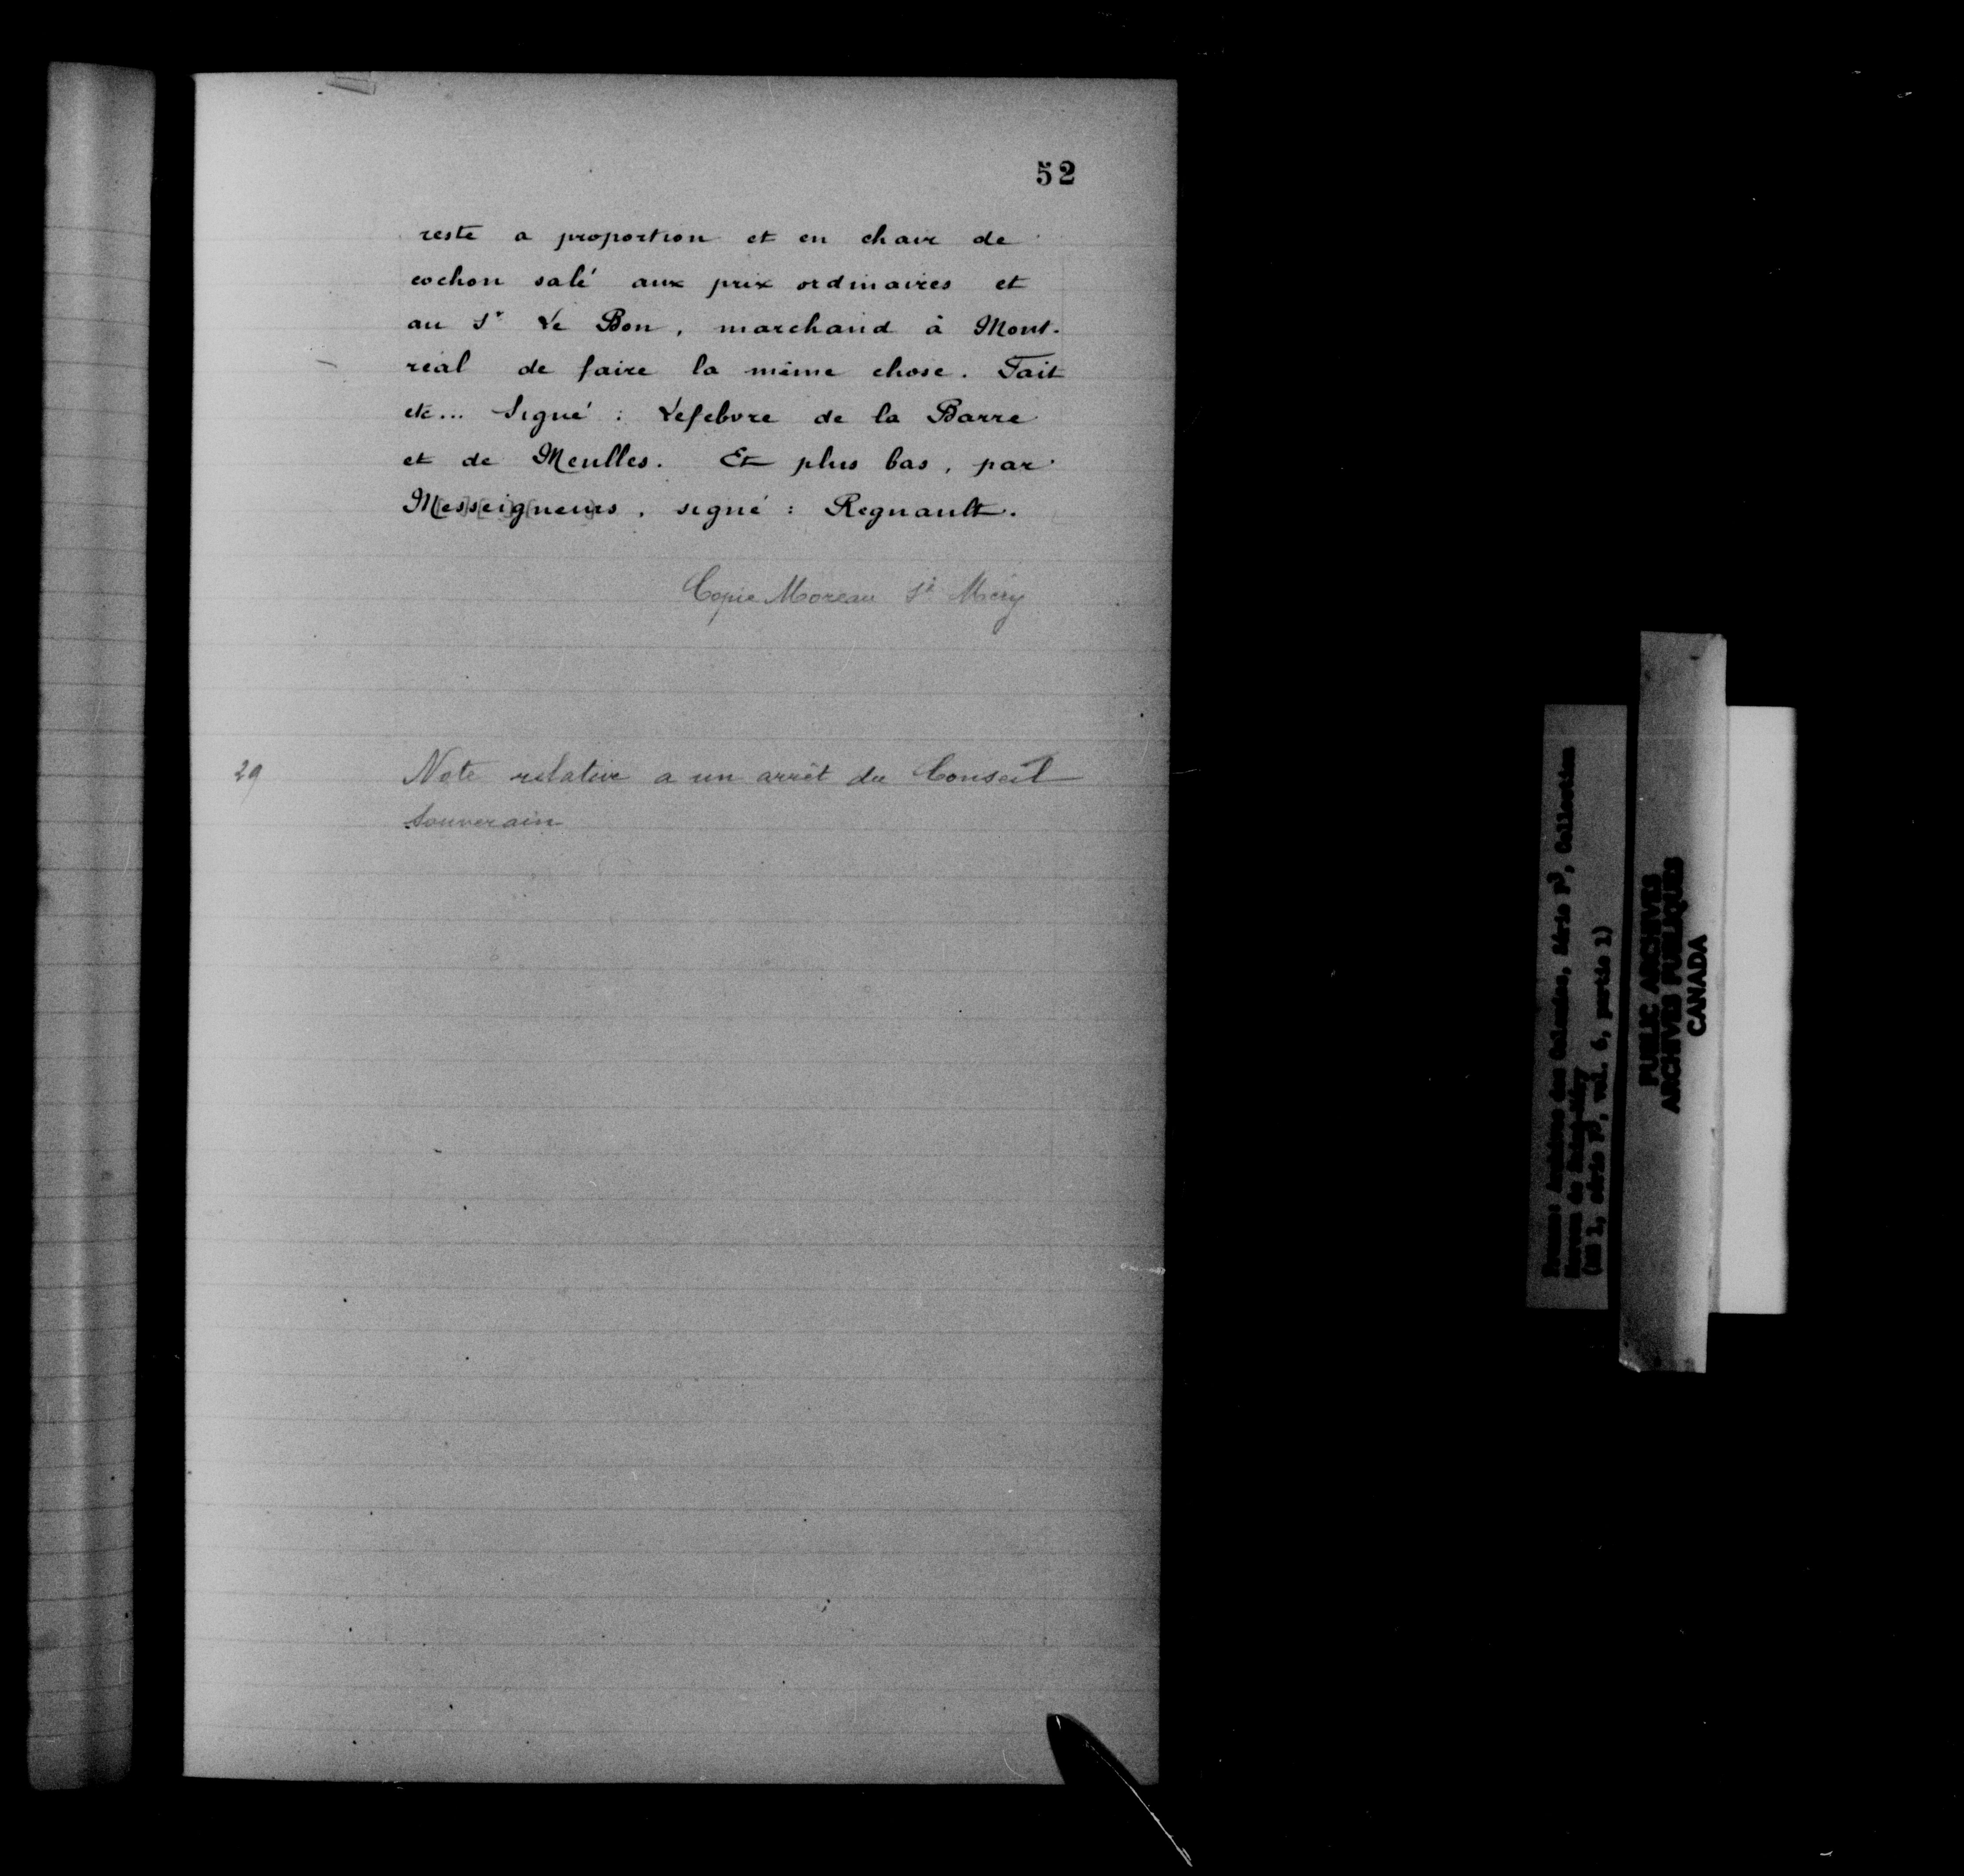 52
reste a proportion et en chair de
cochon salé aux prix ordinaires et
au Sr Le Bon, marchand à Mont-
réal de faire la même chose. Fait
etc... Signé : Lefebvre de la Barre
et de Meulles. Et plus bas, par
M[es]s[ei]g[neurs], signé : Regnault.
Copie Moreau St Méry
29
Note relative a un arrêt du Conseil
Souverain
France: Archives des Colonies, Série F3, Collection
Moreau de Saint-Méry
(MG 1, série F3, vol. 6, partie 1)
PUBLIC ARCHIVES
ARCHIVES PUBLIQUES
CANADA